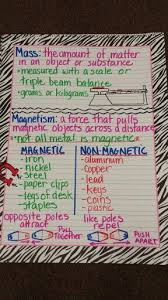 Mass: the amount of matter
in an object or substance
•measured with a scale or
triple beam balance
•grams or kilograms
Magnetism: a force that pulls
magnetic objects across a distance
•not all metal is magnetic
MAGNETIC
NON-MAGNETIC
-iron
-nickel
-steel
-paper clips
-legs of desk
-staples
-aluminum
-copper
-lead
-keys
-coins
-plastic
opposite poles
attract
like poles
repel
Pull
Together
PUSH
APART